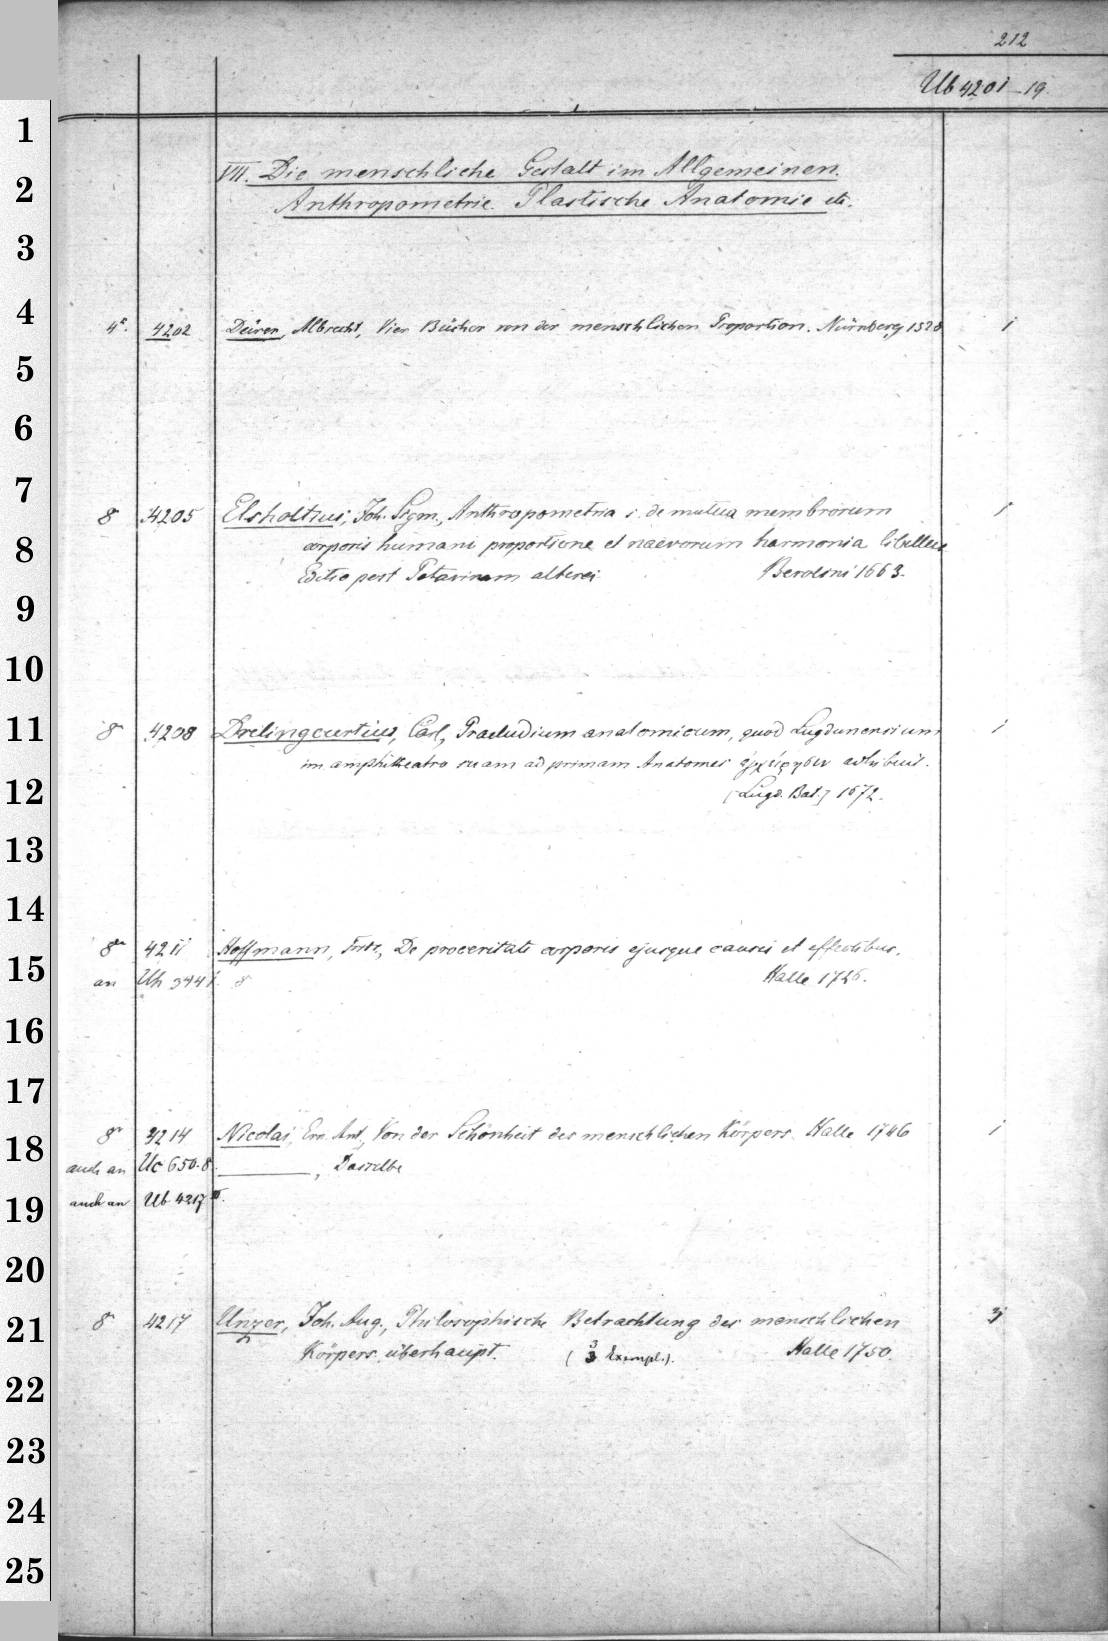 212
Ub 4201-19.
1
2
3
4
5
6
7
8
9
10
11
12
13
14
15
16
17
18
19
20
21
22
23
24
25
VII. Die menschliche Gestalt im Allgemeinen.
Anthropometrie. Plastische Anatomie etc.
4º. 4202 Dürer, Albrecht, Vier Bücher von der menschlichen Proportion. Nürnberg 1528 1
8 4205 Elsholtius, Joh. Sigm., Anthropometria s. de mutua membrorum 1
corporis humani proportione et naevorum harmonia libellus
Editio post Patavinam altera. Berolini 1663.
8º 4208 Drelingcurtius, Carl, Praeludium anatomicum, quod Lugdunensium 1
in amphitheatro suam ad primam Anatomes ἐγχείρησιν adhibuit.
[Lugd. Bat.] 1672.
8º 4211 Hoffmann, Fridr., De proceritate corporis ejusque causis et effectibus.
an Uh 3441. 8 Halle 1726.
8º 4214 Nicolai, Ern. Ant., Von der Schönheit des menschlichen Körpers. Halle 1746 1
auch an Uc 650. 8. ———, Dasselbe
auch an Ub 4217 III.
8 4217 Unzer, Joh. Aug., Philosophische Betrachtung des menschlichen 3
Körpers überhaupt. (3 Exempl.). Halle 1750.